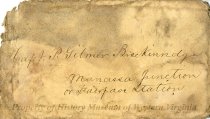 Capt. P. Gilmer Breckinridge
Manassa Junction
or Fairfax Station
Property of History Museum of Western Virginia